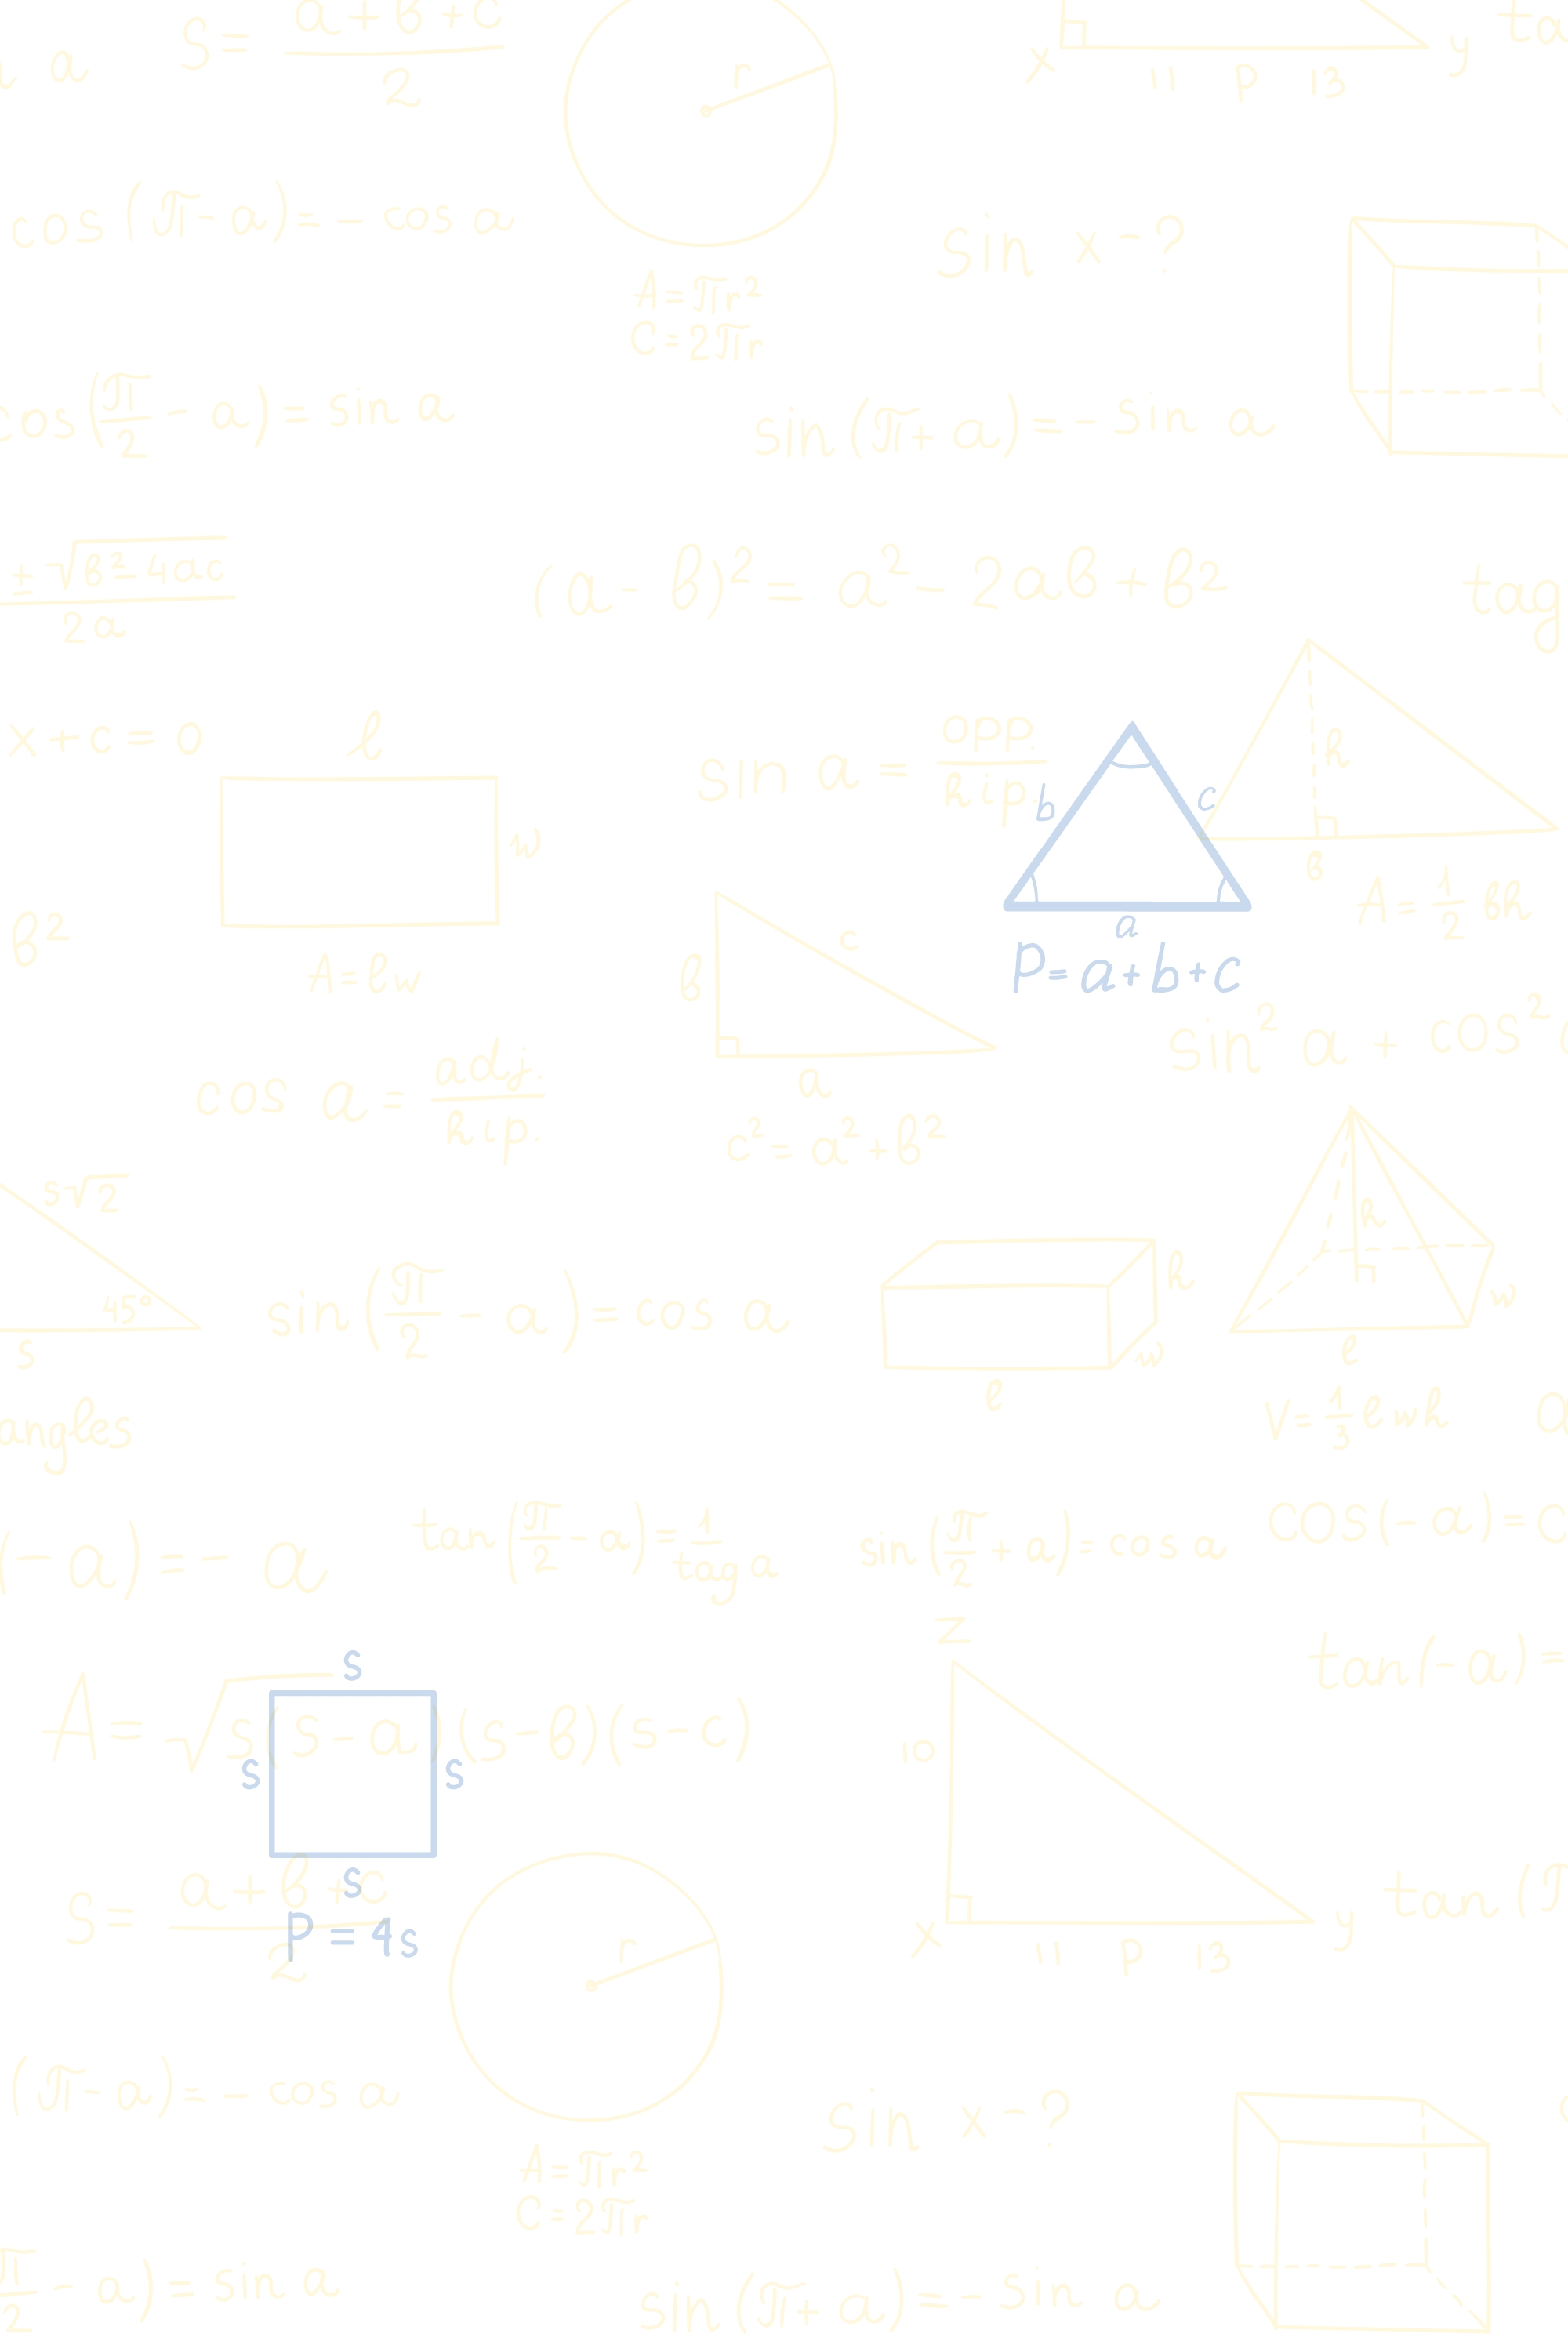 a
S = a + b + c
2
r
x
11 p 13
y
cos (π - a) = - cos a
A = πr²
C = 2πr
sin x - ?
cos (π/2 - a) = sin a
sin (π + a) = - sin a
± √b² - 4ac
2a
(a - b)² = a² - 2ab + b²
tag
x + c = 0
l
w
A = lw
sin a = opp.
hip.
b
c
a
P = a + b + c
h
b
A = 1/2 bh
b²
b
c
a
c² = a² + b²
sin² a + cos²
cos a = adj.
hip.
s√2
45°
s
sin (π/2 - a) = cos a
h
w
l
h
w
l
V = 1/3 lwh
angles
cos (- a) =
(- a) = - a
tan (π/2 - a) = 1
tag a
sin (π/2 + a) = cos a
z
tan (- a) =
A = √s (s - a) (s - b) (s - c)
s
s
s
s
P = 4s
10
x
11 p 13
y
S = a + b + c
2
r
tan (π
(π - a) = - cos a
A = πr²
C = 2πr
sin x - ?
π/2 - a) = sin a
sin (π + a) = - sin a